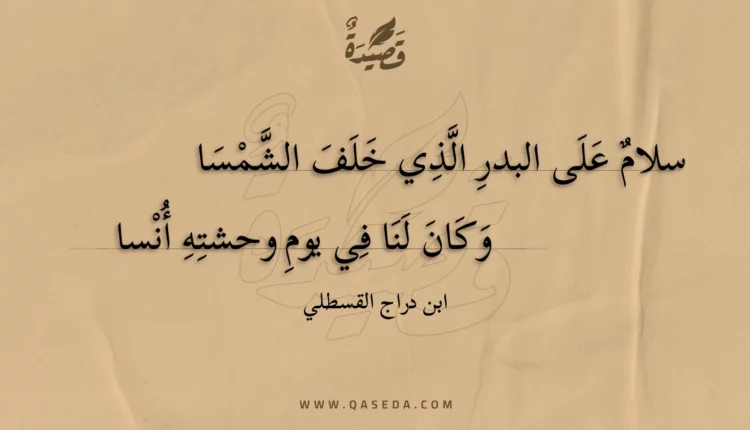 قَصِيدَةٌ
سلامٌ عَلَى البدرِ الَّذِي خَلَفَ الشَّمْسَا
وَكَانَ لَنَا فِي يومِ وحشتِهِ أُنْسا
ابن دراج القسطلي
WWW.QASEDA.COM